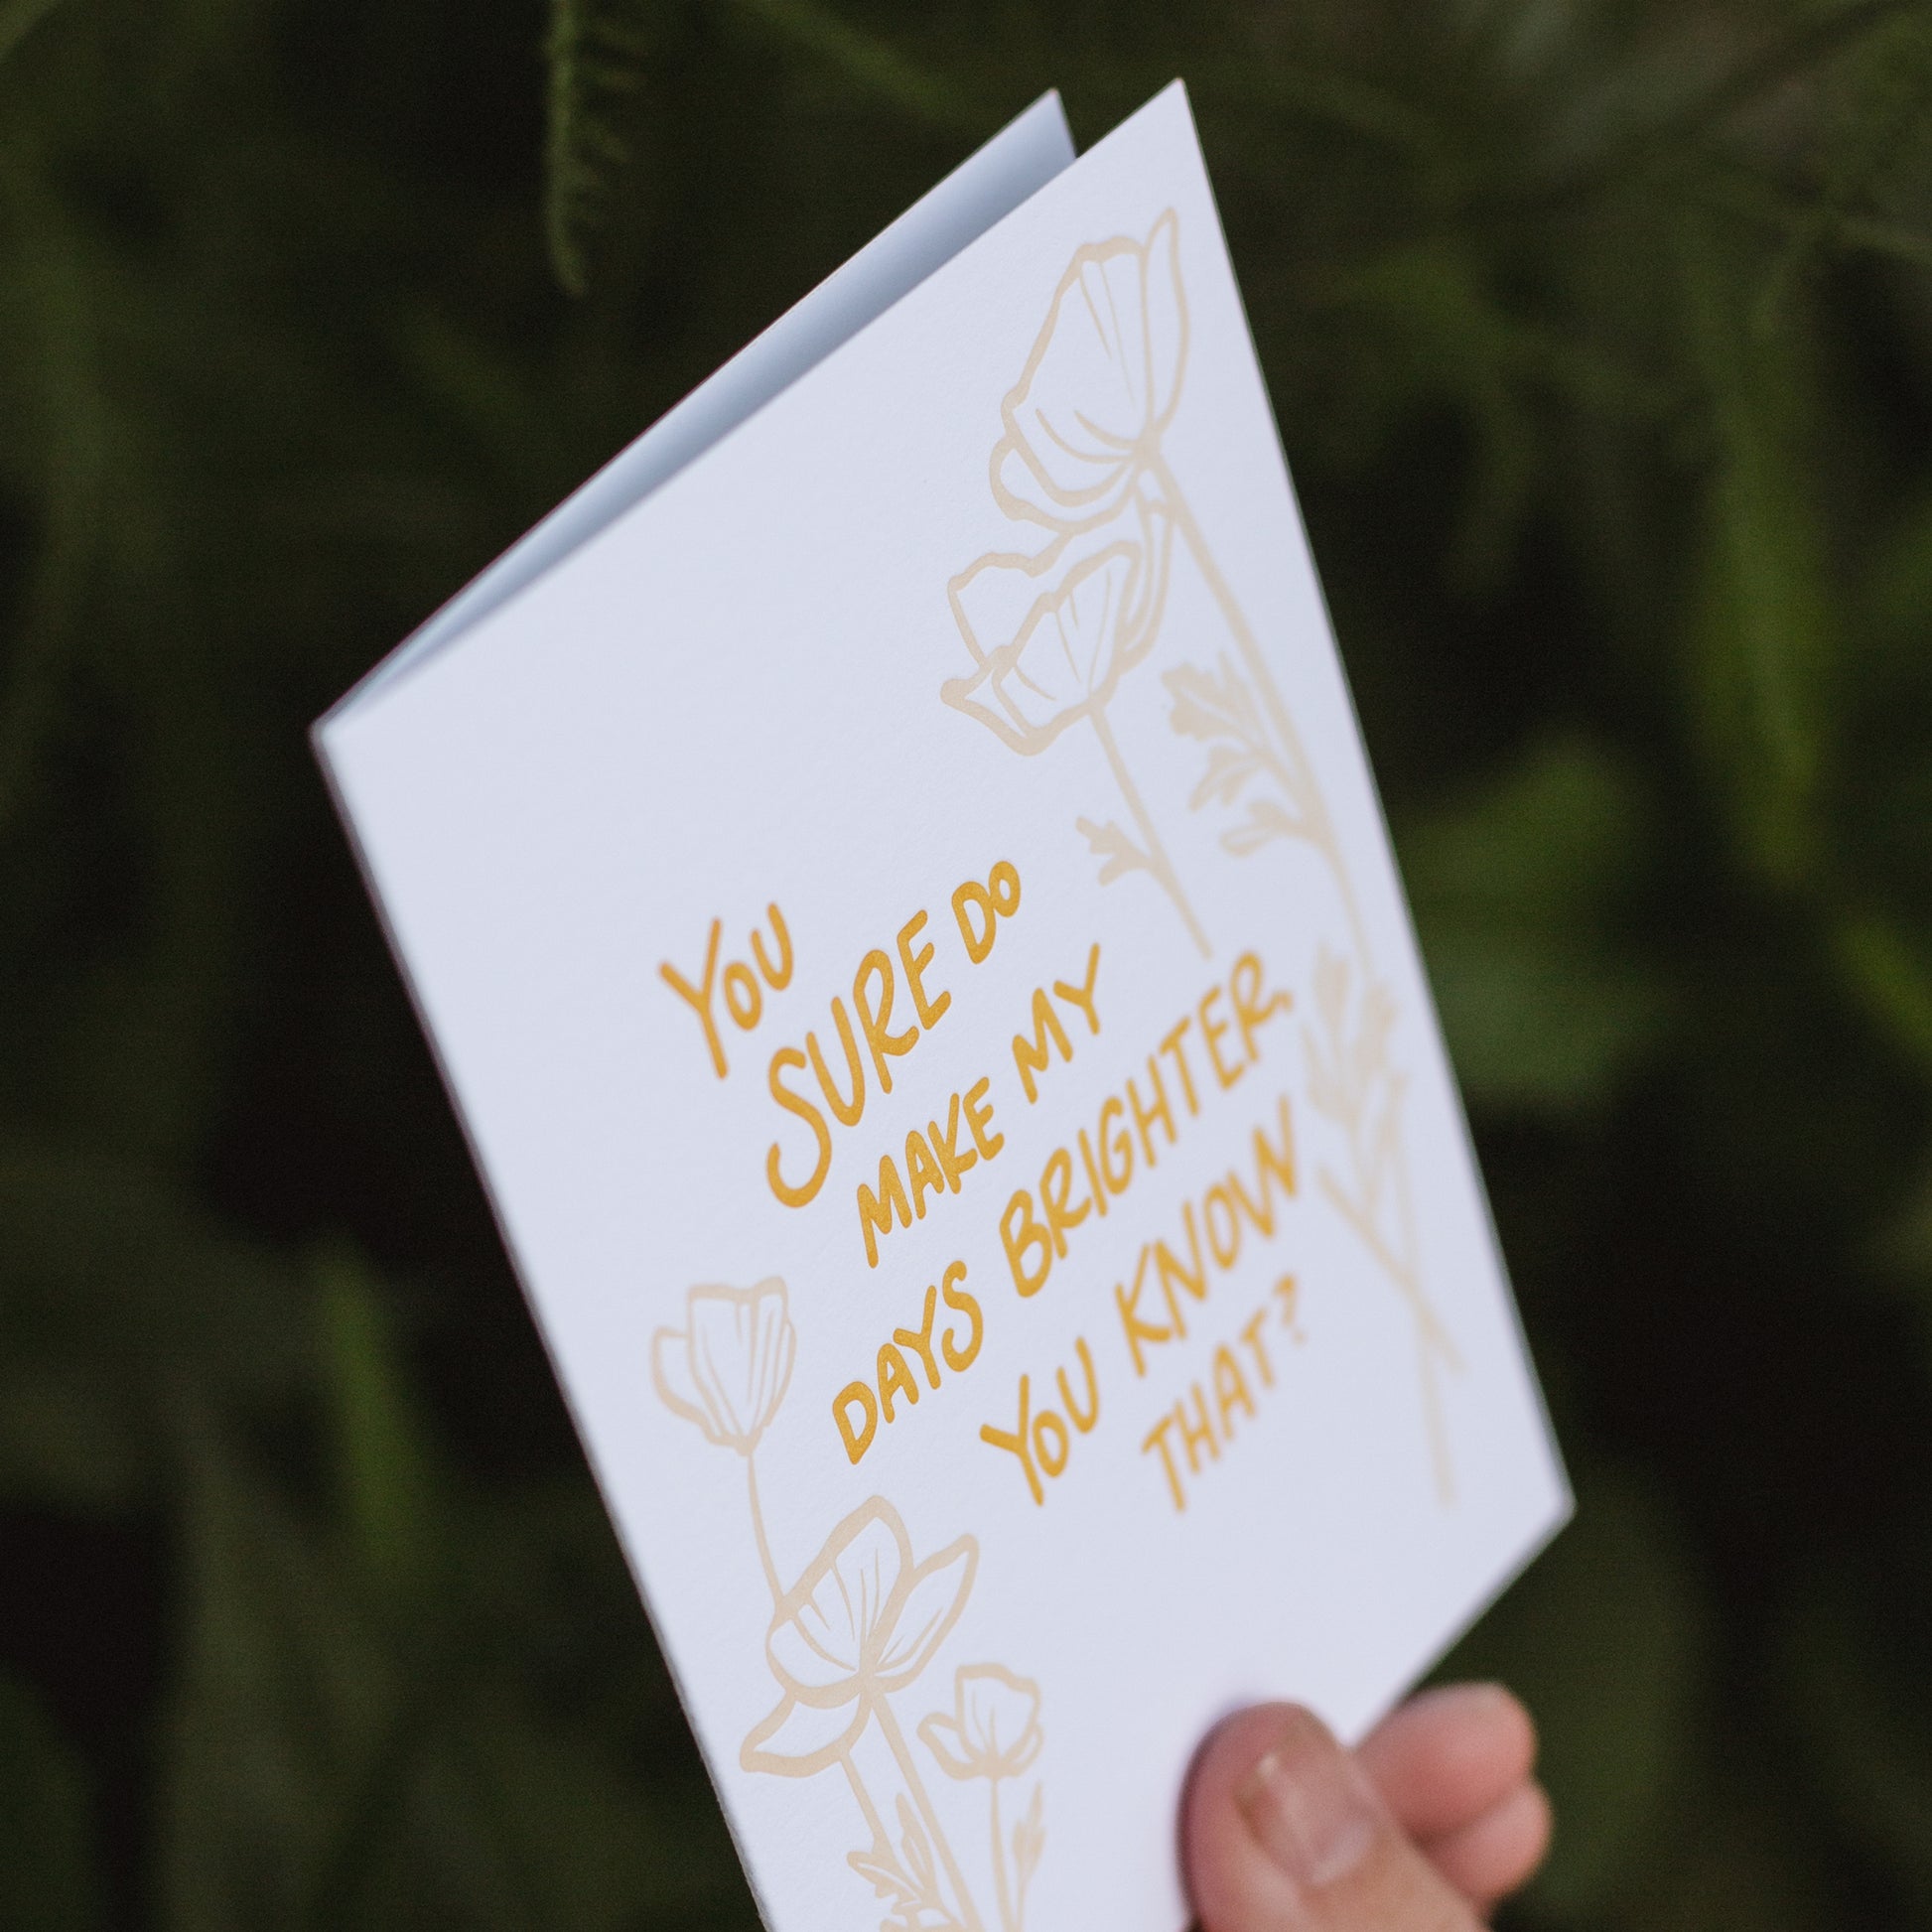 YOU
SURE DO
MAKE MY
DAYS BRIGHTER,
YOU KNOW
THAT?